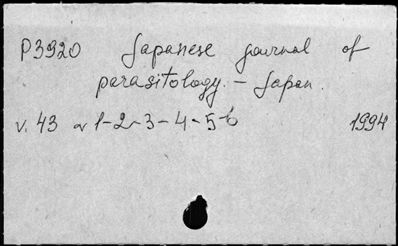 P3920 Japanese journal of
parasitology. – Japan.
v. 43 N 1-2-3-4-5-6 1994